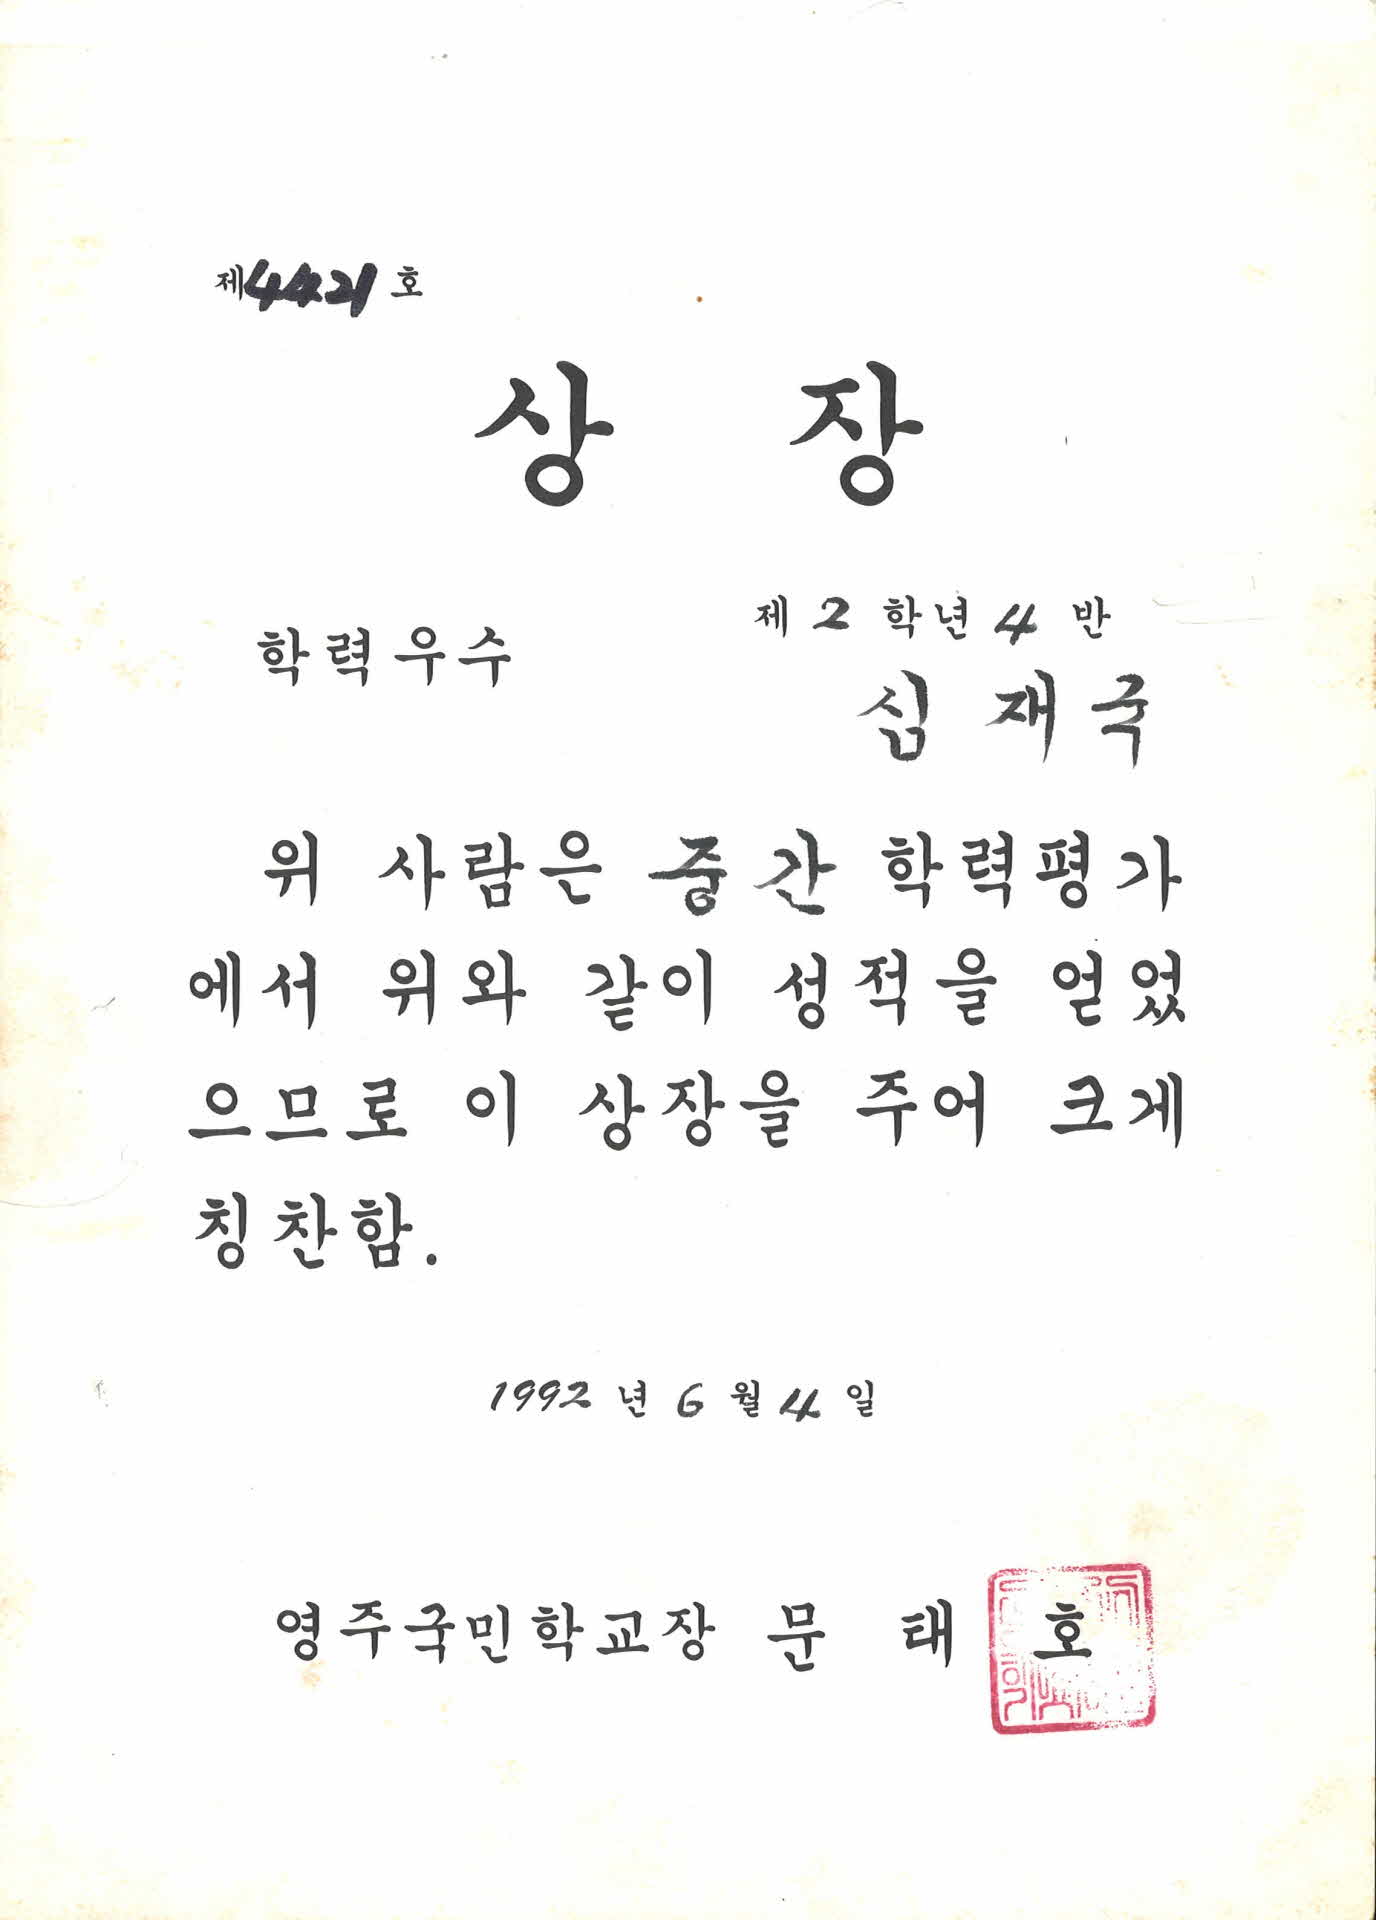 제4421호
상 장
제 2 학년 4 반
학력우수
심재국
위 사람은 중간 학력평가
에서 위와 같이 성적을 얻었
으므로 이 상장을 주어 크게
칭찬함.
1992 년 6 월 4 일
영주국민학교장 문 태 호